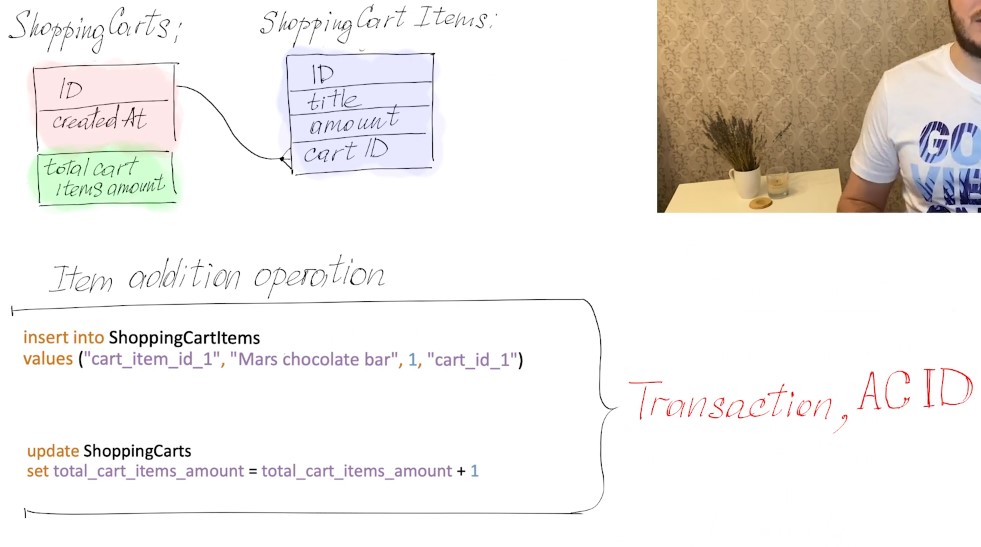 ShoppingCarts;
ShoppingCart Items:
ID
createdAt
total cart
items amount
ID
title
amount
cart ID
Item addition operation
insert into ShoppingCartItems
values ("cart_item_id_1", "Mars chocolate bar", 1, "cart_id_1")
update ShoppingCarts
set total_cart_items_amount = total_cart_items_amount + 1
Transaction, ACID
GO